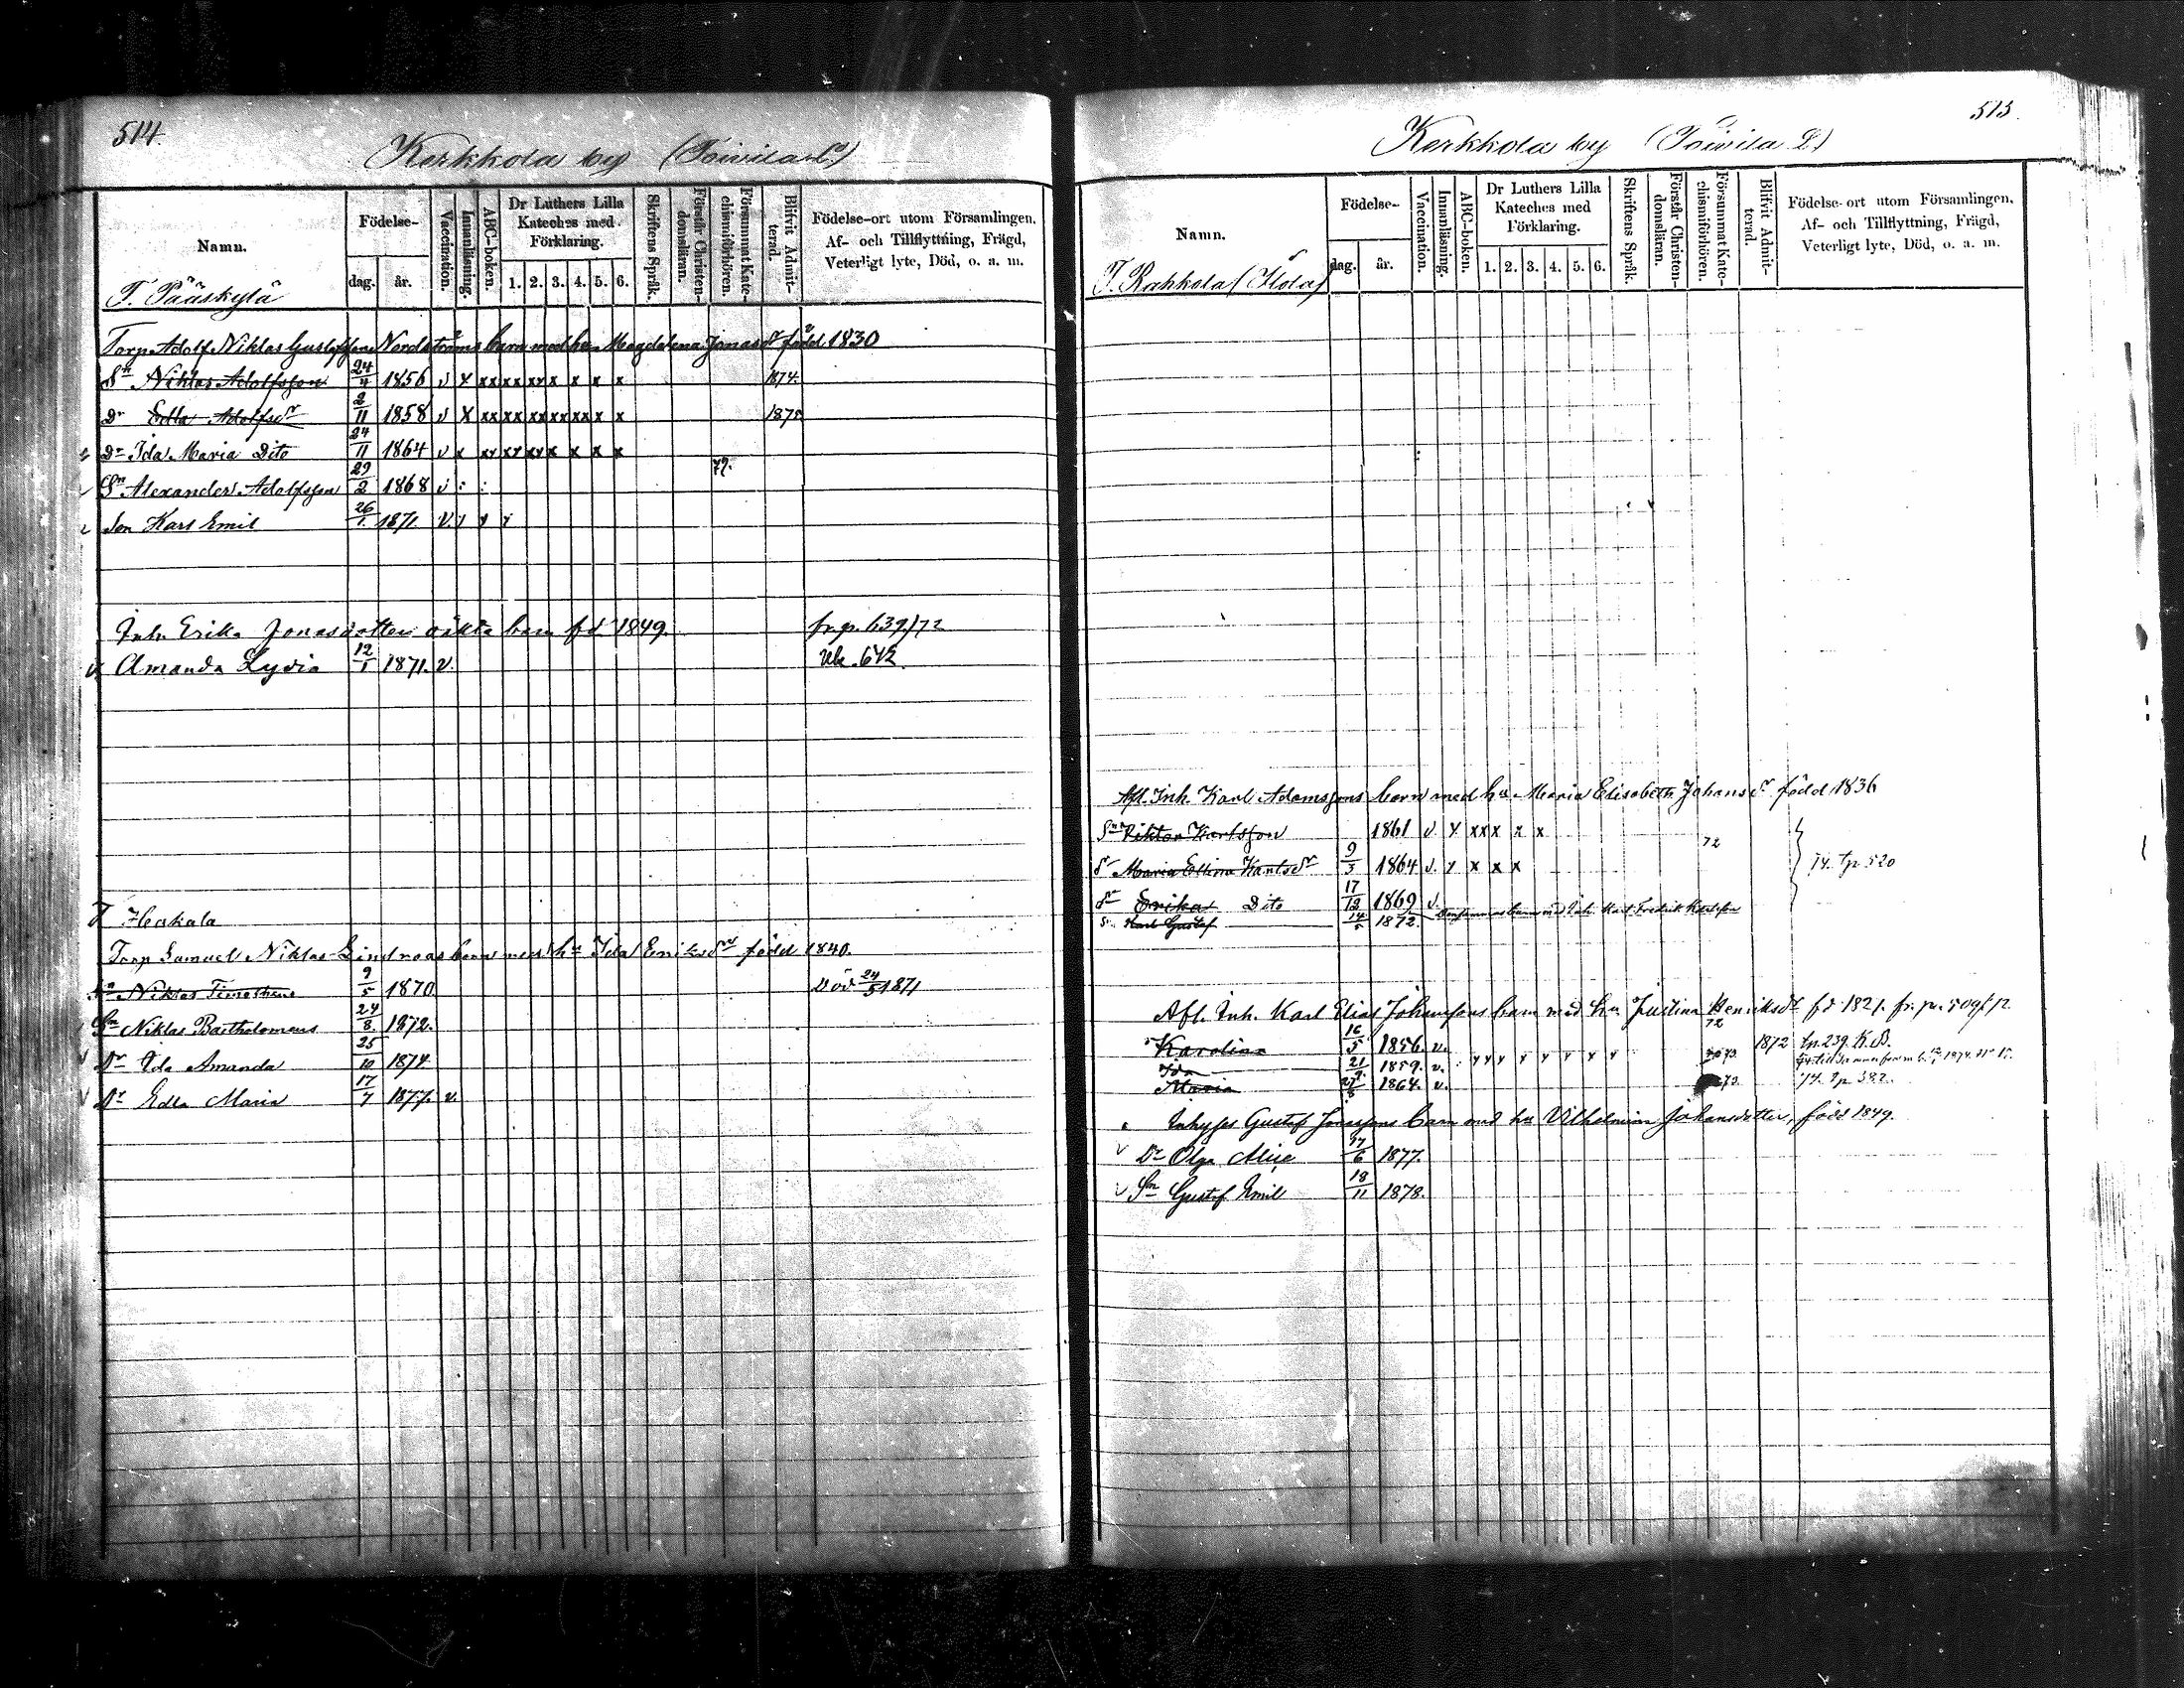 514.
Kerkkola by (Toivila
Namn.
Födelse-
dag.
år.
Vaccination.
Innanläsning.
ABC-boken.
Dr Luthers Lilla
Kateches med
Förklaring.
1. 2. 3. 4. 5. 6.
Skriftens Språk.
Förstår Christen-
domsläran.
Försummat Kate-
chismiförhören.
Blifvit Admit-
terad.
Födelse-ort utom Församlingen,
Af- och Tillflyttning, Frägd,
Veterligt lyte, Död, o. a. m.
T. Pääskylä
Torp. Adolf Niklas Gustafsson Nordströms barn med hu Magdalena Jonasdr född 1830
Sn Niklas Adolfsson 24/4 1856 v x xx xx xx x x x x 1874.
Dr Edla Adolfsdr 2/11 1858 v x xx xx xx xx xx x x 1875
Dr Ida Maria Dito 24/11 1864 v x xx xx xx x x x x
72.
Sn Alexander Adolfsson 29/2 1868 v
Son Karl Emil 26/1. 1871 v.
Inh. Erika Jonasdotter oäkta barn fd 1849. fr. p. 639/72
Amanda Lydia 12/5 1871. v. 642.
T Heikala
Torp Samuel Niklas Lindroos barn med hu Ida Eriksdr född 1840.
Sn Niklas Timotheus 9/5 1870 Död 24/5 1871
Sn Niklas Bartholomeus 24/8. 1872.
Dr Ida Amanda 25/10 1874
Dr Edla Maria 17/7 1877. v.
515.
Kerkkola by (Toivila
Namn.
Födelse-
dag.
år.
Vaccination.
Innanläsning.
ABC-boken.
Dr Luthers Lilla
Kateches med
Förklaring.
1. 2. 3. 4. 5. 6.
Skriftens Språk.
Förstår Christen-
domsläran.
Försummat Kate-
chismiförhören.
Blifvit Admit-
terad.
Födelse-ort utom Församlingen,
Af- och Tillflyttning, Frägd,
Veterligt lyte, Död, o. a. m.
T. Rahkola
Afl. Inh. Karl Adamssons barn med hu Maria Elisabeth Johansdr född 1836
Sn Viktor Karlsson 1861 v. x xx x x x 72
Dr Maria Karlsdr 9/3 1864 v. x x x x 74. tp 520
Dr Erika Dito 17/12 1869 v.
S. Karl Gustaf 14/5 1872. Inh. Karl Fredrik Karlsson
Afl. Inh. Karl Elias Johanssons barn med hu Justina Henriksdr fd 1821. fr. p. 509/72.
Karolina 16/5 1856. v. 72 1872 tp. 239. K.B.
Ida 21 1859. v.
Maria 1864. v. 74. tp 382.
Inhyses Gustaf barn med hu Vilhelmina Johansdotter, född 1849.
Dr Olga 1877.
Sn Gustaf Emil 18/11 1878.